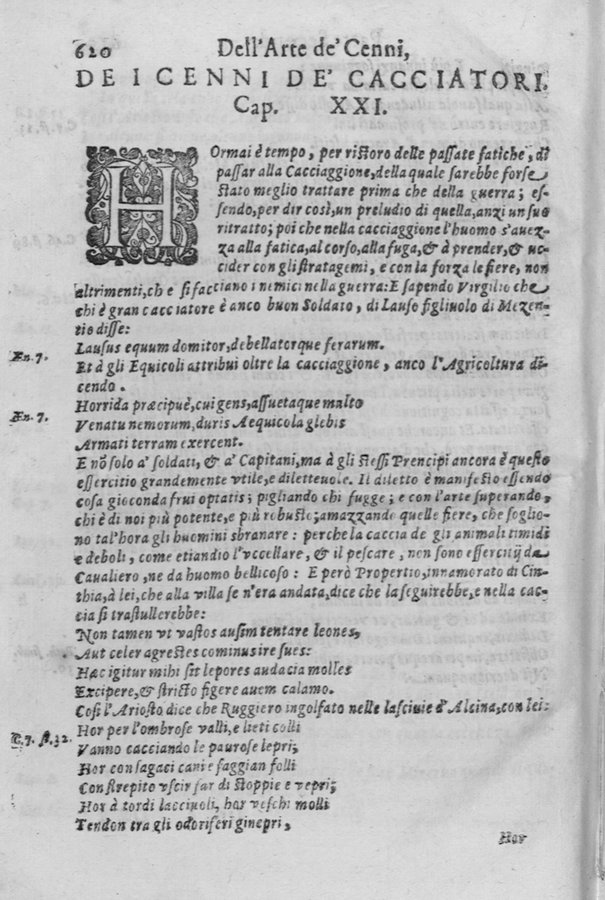 620 Dell'Arte de' Cenni,
DE I CENNI DE' CACCIATORI.
Cap. XXI.
HOrmai è tempo, per ristoro delle passate fatiche, di
passar alla Cacciaggione, della quale sarebbe forse
stato meglio trattare prima che della guerra; es-
sendo, per dir così, un preludio di quella, anzi un suo
ritratto; poi che nella cacciaggione l'huomo s'avez-
za alla fatica, al corso, alla fuga, & à prender, & uc-
cider con gli stratagemi, e con la forza le fiere, non
altrimenti, ch e si facciano i nemici nella guerra: E sapendo Virgilio che
chi è gran cacciatore è anco buon Soldato, di Lauso figliuolo di Mezen-
tio disse:
Lausus equum domitor, debellatorque ferarum.
Æn. 7. Et à gli Equicoli attribuì oltre la cacciaggione, anco l'Agricoltura di-
cendo.
Horrida præcipuè, cui gens, assuetaque multo
Æn. 7. Venatu nemorum, duris Aequicola glebis
Armati terram exercent.
E nõ solo a' soldati, & a' Capitani, ma à gli stessi Prencipi ancora è questo
essercitio grandemente vtile, e diletteuole. Il diletto è manifesto essendo
cosa gioconda frui optatis; pigliando chi fugge; e con l'arte superando,
chi è di noi più potente, e più robusto; amazzando quelle fiere, che soglio-
no tal'hora gli huomini sbranare: perche la caccia de gli animali timidi
e deboli, come etiandio l'vccellare, & il pescare, non sono essercitij da
Caualiero, ne da huomo bellicoso: E però Propertio, innamorato di Cin-
thia, à lei, che alla villa se n'era andata, dice che la seguirebbe, e nella cac-
cia si trastullerebbe:
Non tamen vt vastos ausim tentare leones,
Aut celer agrestes cominus ire sues:
Hæc igitur mihi sit lepores audacia molles
Excipere, & stricto figere auem calamo.
Così l'Ariosto dice che Ruggiero ingolfato nelle lasciuie d'Alcina, con lei:
C. 7. st. 32. Hor per l'ombrose valli, e lieti colli
Vanno cacciando le paurose lepri;
Hor con sagaci cani e faggian folli
Con strepito vscir far di stoppie e vepri;
Hor à tordi lacciuoli, hor veschi molli
Tendon tra gli odoriferi ginepri,
Hor